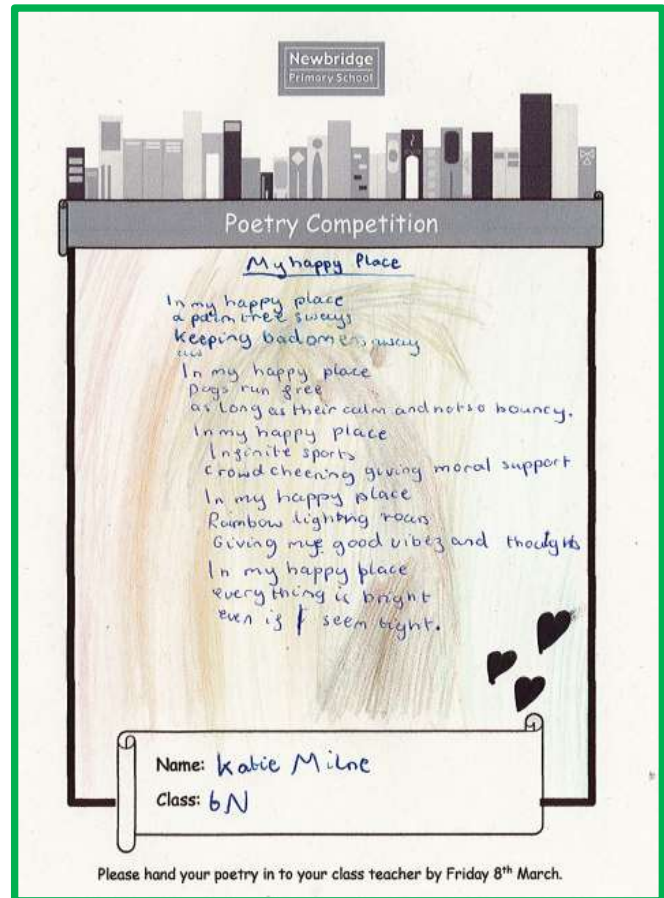 Newbridge
Primary School
Poetry Competition
My happy Place
In my happy place
a palm tree sways
keeping bad omens away
In my happy place
Dogs run free
as long as their calm and not so bouncy.
In my happy place
Infinite sports
crowd cheering giving moral support
In my happy place
Rainbow lighting roars
Giving me good vibez and thoughts
In my happy place
everything is bright
even if I seem tight.
Name: Katie Milne
Class: 6N
Please hand your poetry in to your class teacher by Friday 8th March.